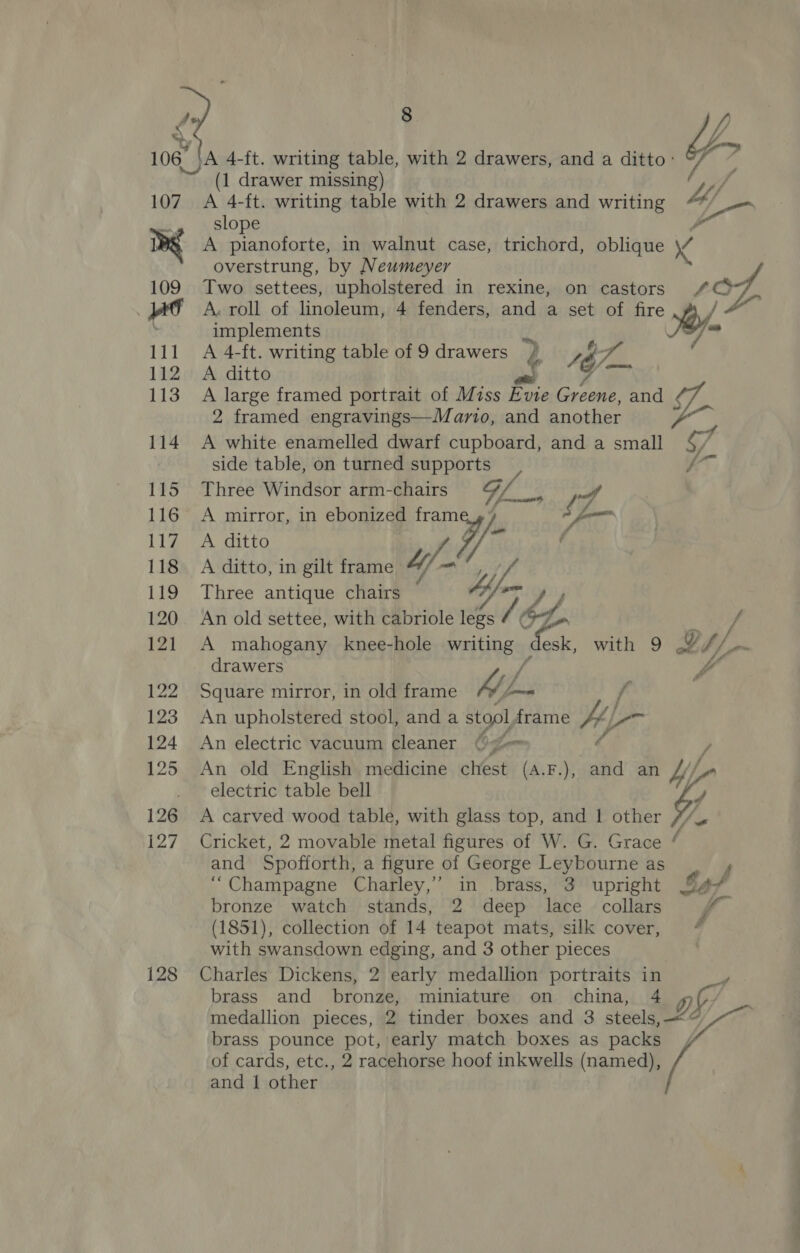 8
106 A 4-ft. writing table, with 2 drawers, and a ditto
(1 drawer missing)
107 A 4-ft. writing table with 2 drawers and writing
slope
A pianoforte, in walnut case, trichord, oblique
overstrung, by Neumeyer
109 Two settees, upholstered in rexine, on castors
A roll of linoleum, 4 fenders, and a set of fire
implements
111 A 4-ft. writing table of 9 drawers
112 A ditto
113 A large framed portrait of Miss Evie Greene, and
2 framed engravings—Mario, and another
114 A white enamelled dwarf cupboard, and a small
side table, on turned supports
115 Three Windsor arm-chairs
116 A mirror, in ebonized frame
117 A ditto
118 A ditto, in gilt frame
119 Three antique chairs
120 An old settee, with cabriole legs
121 A mahogany knee-hole writing desk, with 9
drawers
122 Square mirror, in old frame
123 An upholstered stool, and a stool frame
124 An electric vacuum cleaner
125 An old English medicine chest (A.F.), and an
electric table bell
126 A carved wood table, with glass top, and 1 other
127 Cricket, 2 movable metal figures of W. G. Grace
and Spofforth, a figure of George Leybourne as
“Champagne Charley,” in brass, 3 upright
bronze watch stands, 2 deep lace collars
(1851), collection of 14 teapot mats, silk cover,
with swansdown edging, and 3 other pieces
128 Charles Dickens, 2 early medallion portraits in
brass and bronze, miniature on china, 4
medallion pieces, 2 tinder boxes and 3 steels,
brass pounce pot, early match boxes as packs
of cards, etc., 2 racehorse hoof inkwells (named),
and 1 other